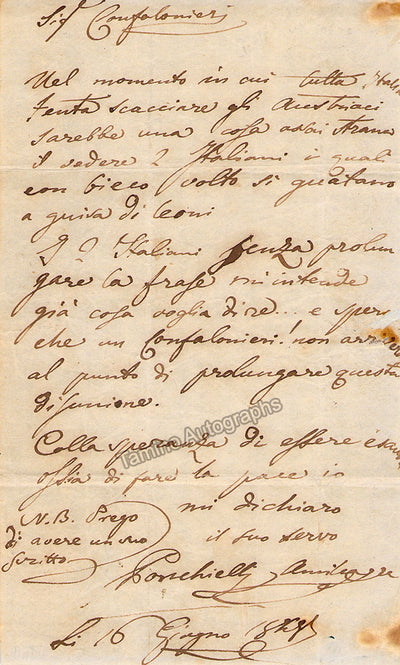 Sig.r Confalonieri
Nel momento in cui tutta Italia
tenta scacciare gli Austriaci
sarebbe una cosa assai strana
il vedere 2 Italiani i quali
con bieco volto si guatano
a guisa di leoni
I 2 Italiani senza prolun
gare la frase mi intende
già cosa voglia dire... e spero
che un Confalonieri! non arrivi
al punto di prolungare questa
disunione.
Colla speranza di essere
ossia di fare la pace io
mi dichiaro
il suo servo
Ponchielli Amilcare
N.B. Prego
di avere un suo
scritto
Li 16 Giugno
Tamino Autographs